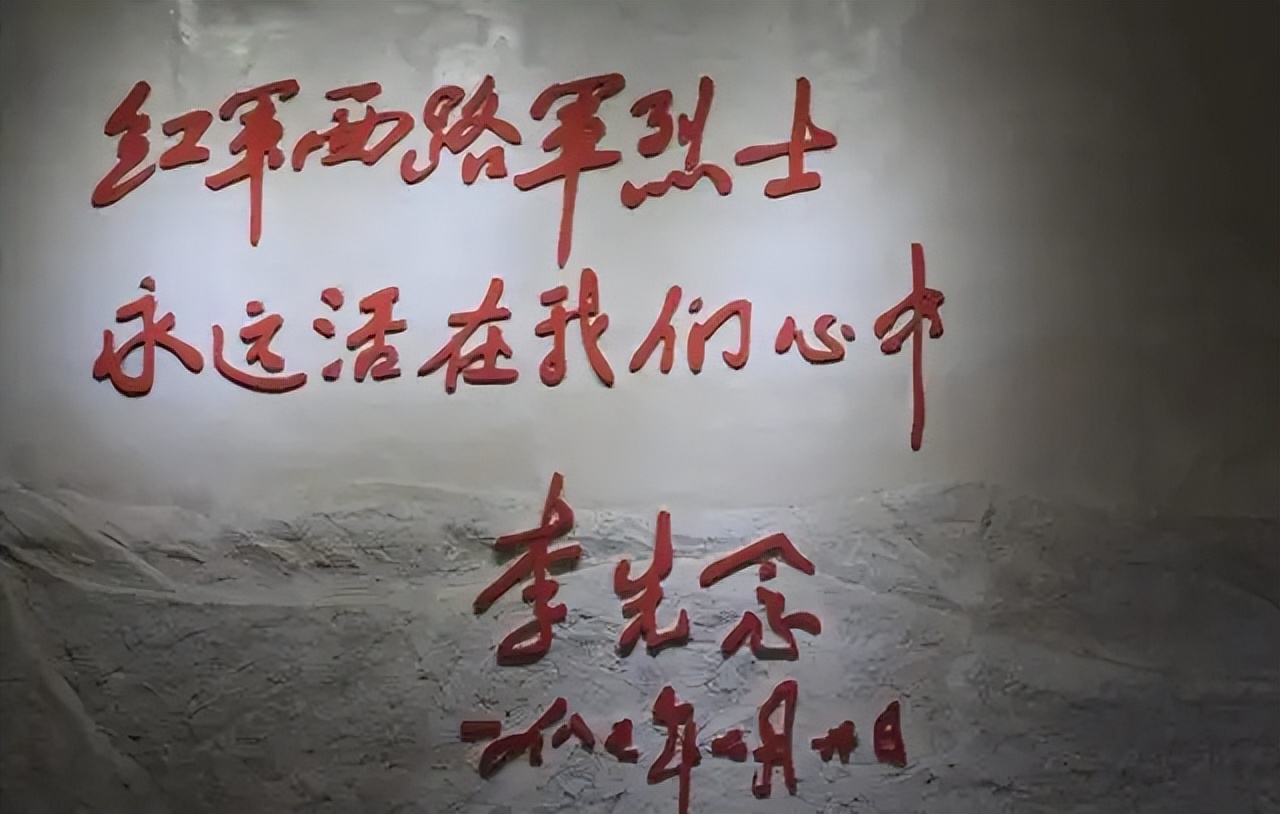 红军西路军烈士
永远活在我们心中
李先念
一九八七年二月廿日